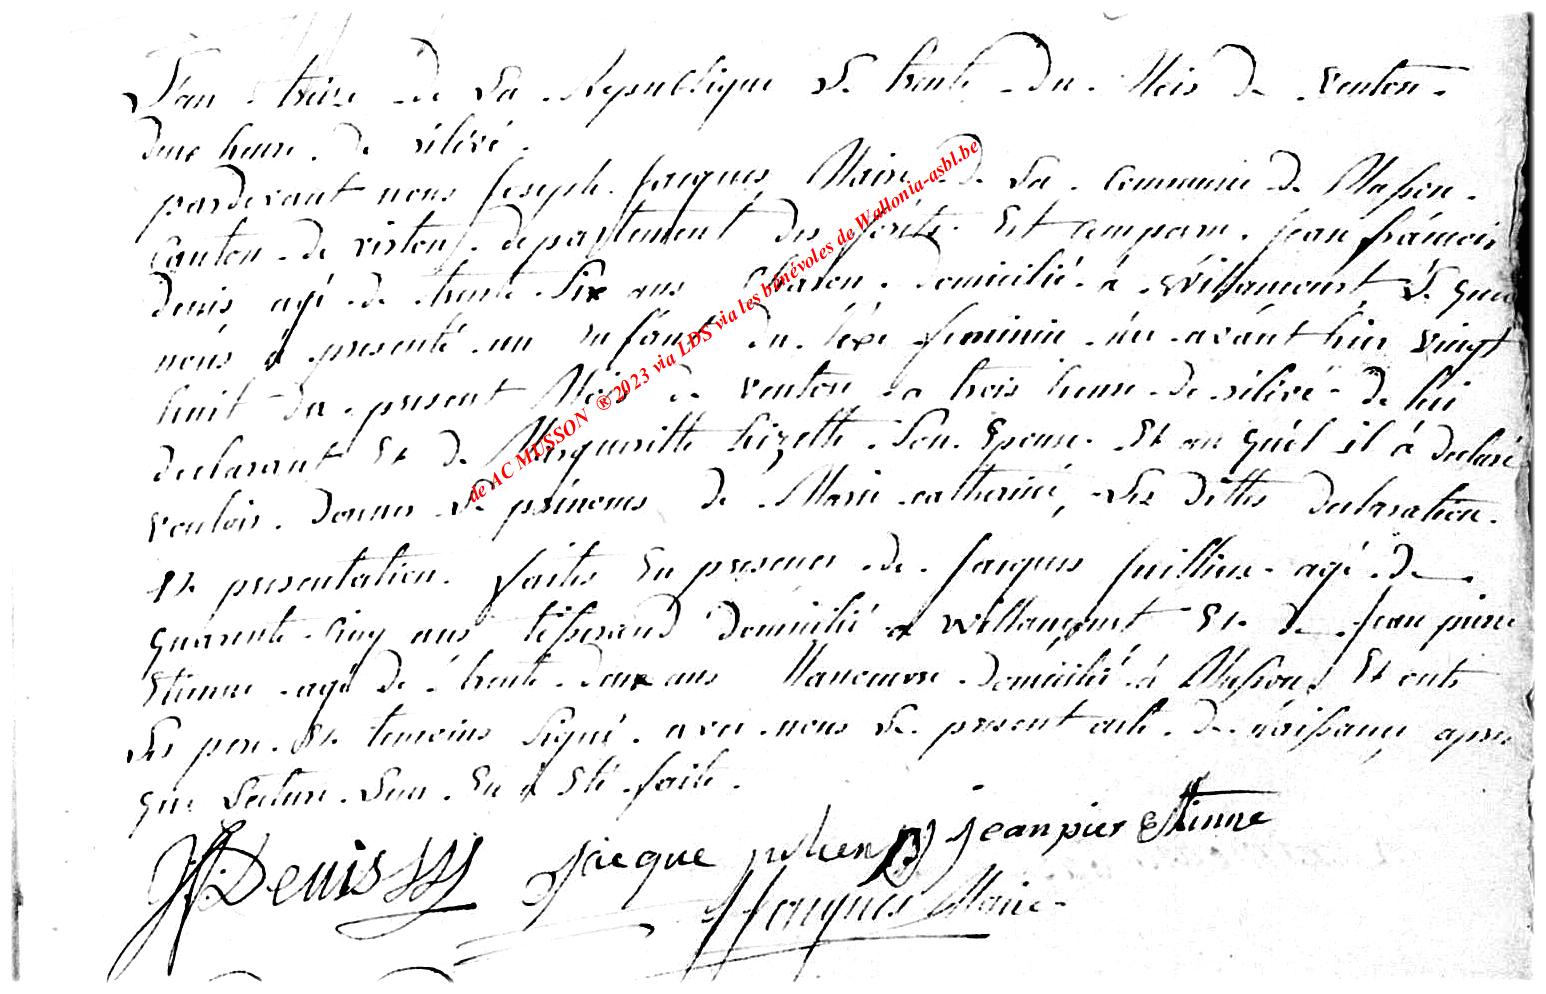 L'an treize de La Republique Le trente du Mois de venton
deux heure de rélévé
pardevant nous Joseph Jacques Maire de La Commune de Musson
Canton de virton departement des foréts Est comparu Jean fráncois
denis agé de trente Six ans Charon domicilié á Willancourt Le quel
nous á presenté un enfánt du séxe feminin née avánt hier vingt
huit du present Mois de venton a trois heure de rélévé de lui
declarant Et de Margueritte Lizette Son Epouse Et au quél il á declaré
vouloir donner Le prénoms de Marie catherine, Les dittes declaration
Et presentation faites En presence de Jacques Juillien agé de
quarente Cinq ans tisserand domicilié a Willancourt Et de Jean pierre
Etienne agé dé trente deux ans Manoeuvre domicilié á Musson Et onts
Les pere Et temoins Signé avec nous Le present acte de náissance apres
que Lecture Leur En á Eté faite
JF Denis Jacque julien jean pier Etinne
JJacques Maire
de AC MUSSON ®2023 via LDS via les bénévoles de Wallonia-asbl.be